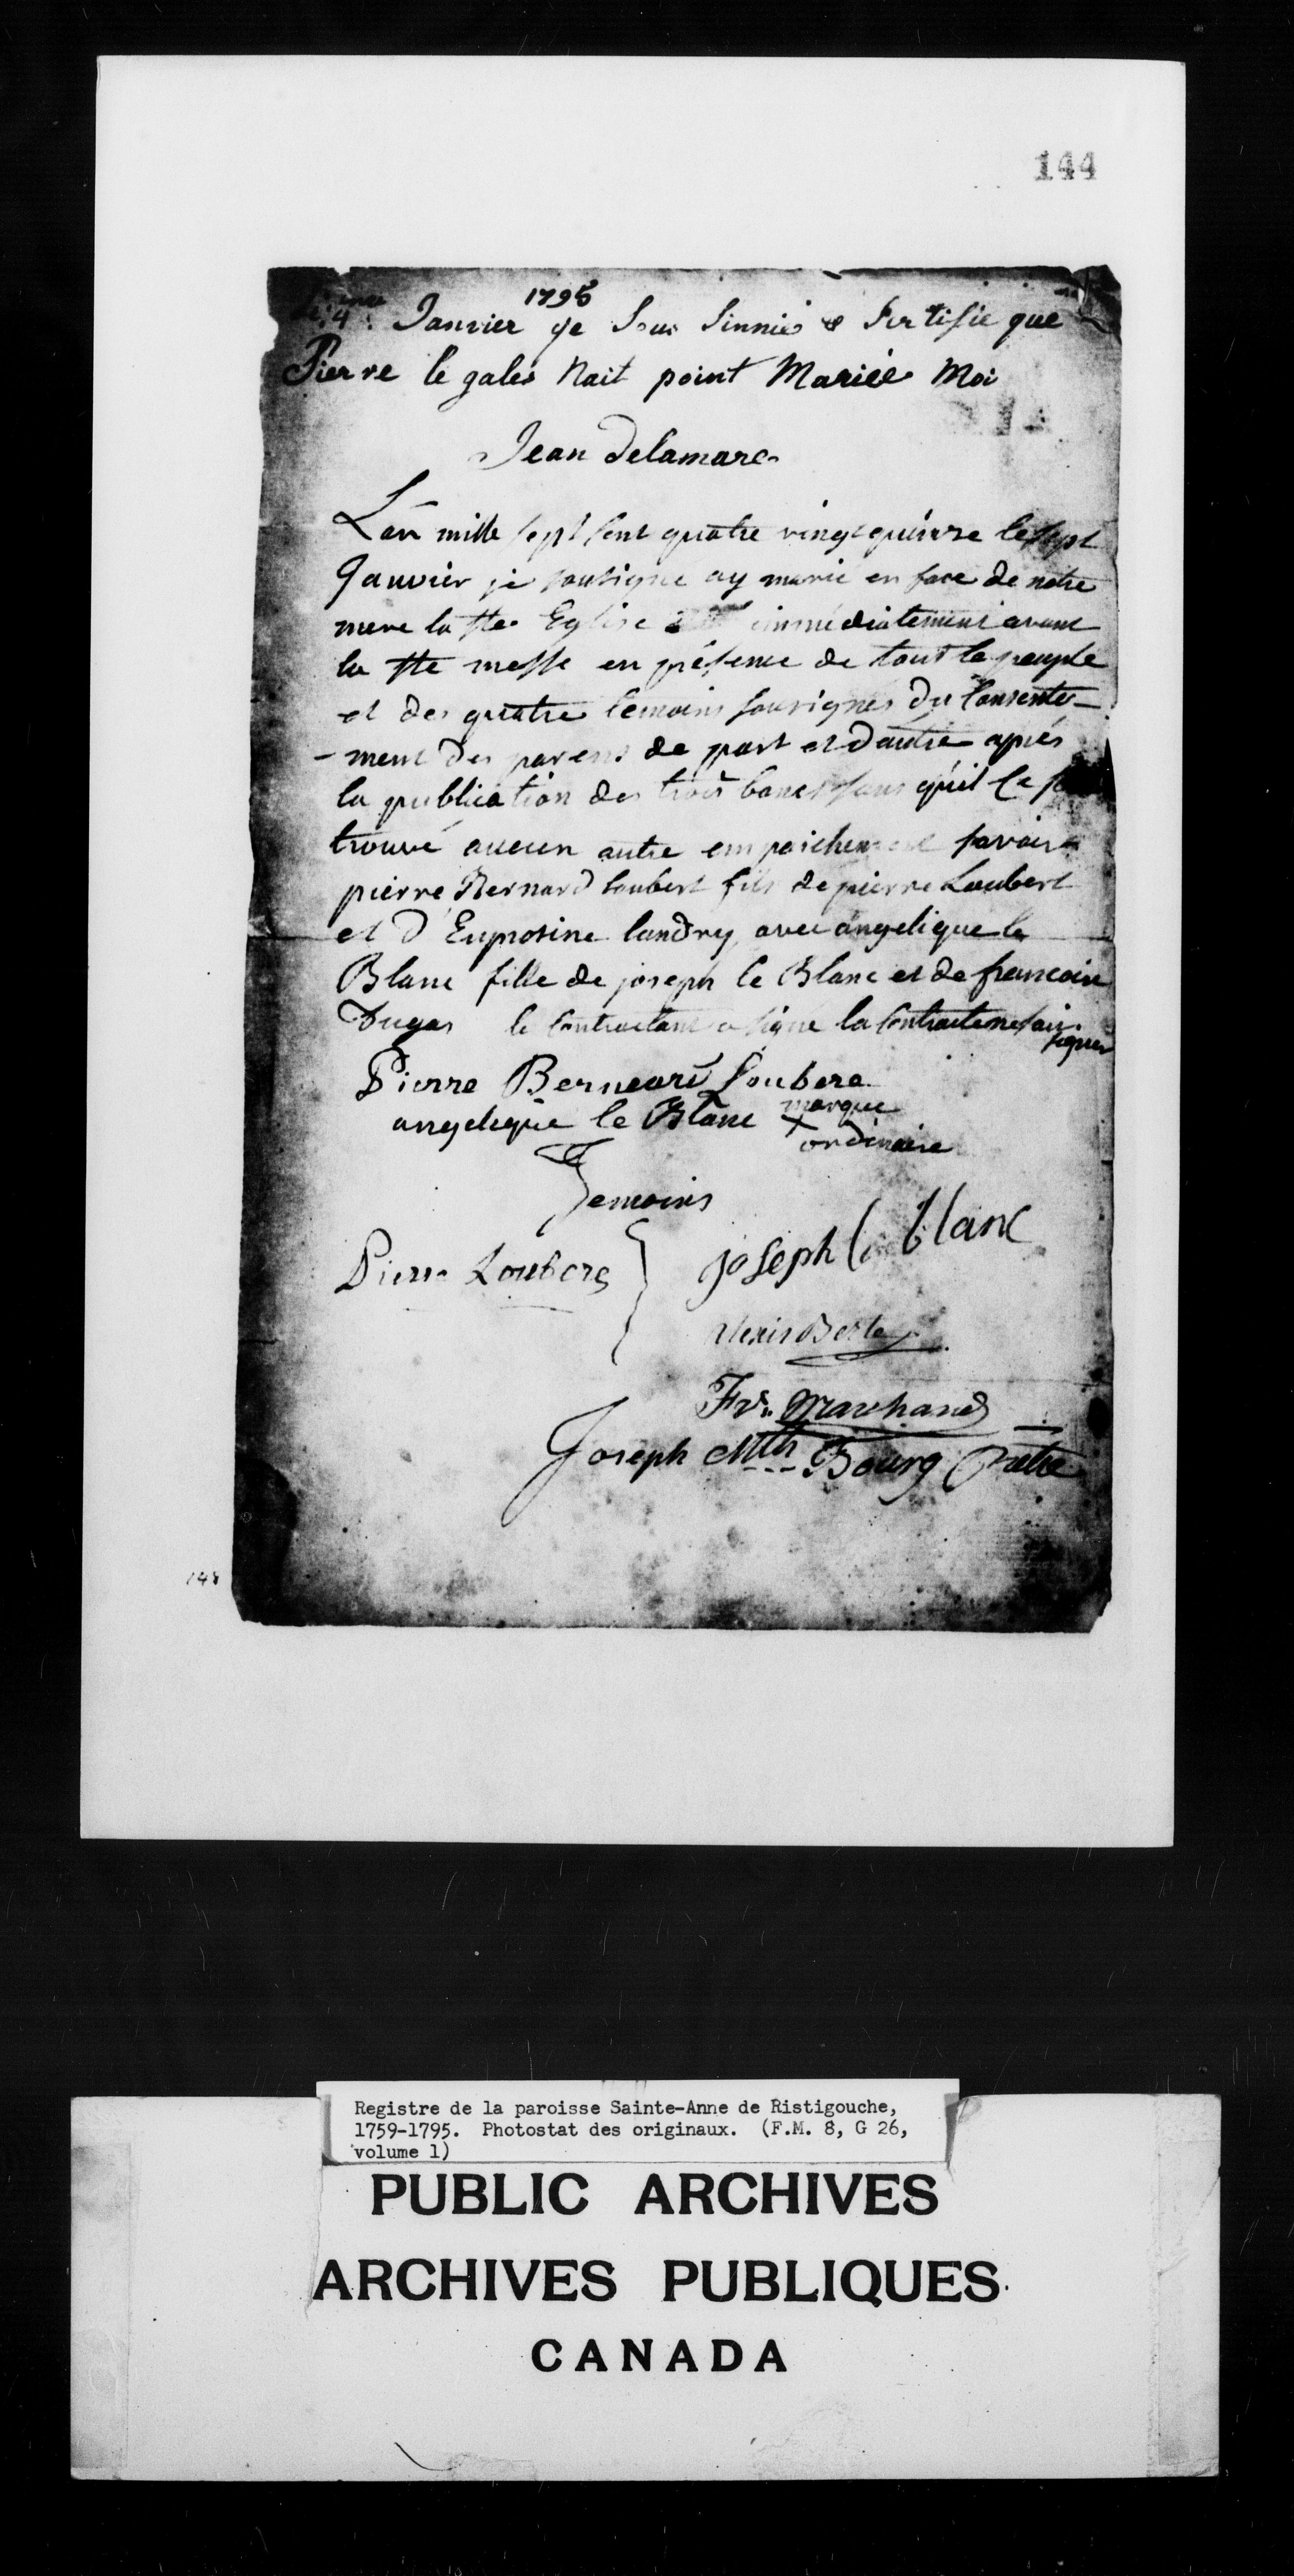 144
Le 4me Janvier 1795 je Sous Sinnié & Sertifie que
Pierre le gales Nait point Mariée Moi
Jean Delamare
L'an mille sept sent quatre vingt quinze le sept
Janvier je sousigné ay marié en face de notre
mere la Ste Eglise immédiatement avant
la Ste messe en présence de tout le peuple
et des quatre temoins sousignés du Consente-
-ment des parens de part et d'autre après
la publication des trois bancs sans qu'il se
trouvé aucun autre empaichement savoir
pierre Bernard Loubert fils de pierre Loubert
et d'Euprosine landry avec angelique le
Blanc fille de joseph le Blanc et de francoise
Dugas le Contractant a signé la Contractante
signer
Pierre Bernard Loubere
angelique le Blanc marque
X
ordinaire
Temoins
Pierre Loubere } joseph le blanc
Frs. Marchand
Joseph Mth Bourg Prêtre
148
Registre de la paroisse Sainte-Anne de Ristigouche,
1759-1795. Photostat des originaux. (F.M. 8, G 26,
volume 1)
PUBLIC ARCHIVES
ARCHIVES PUBLIQUES
CANADA